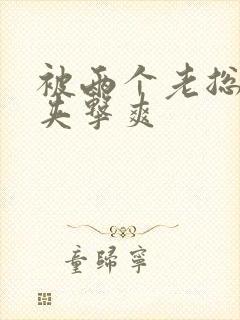 被两个老总
夹击爽
童归宁